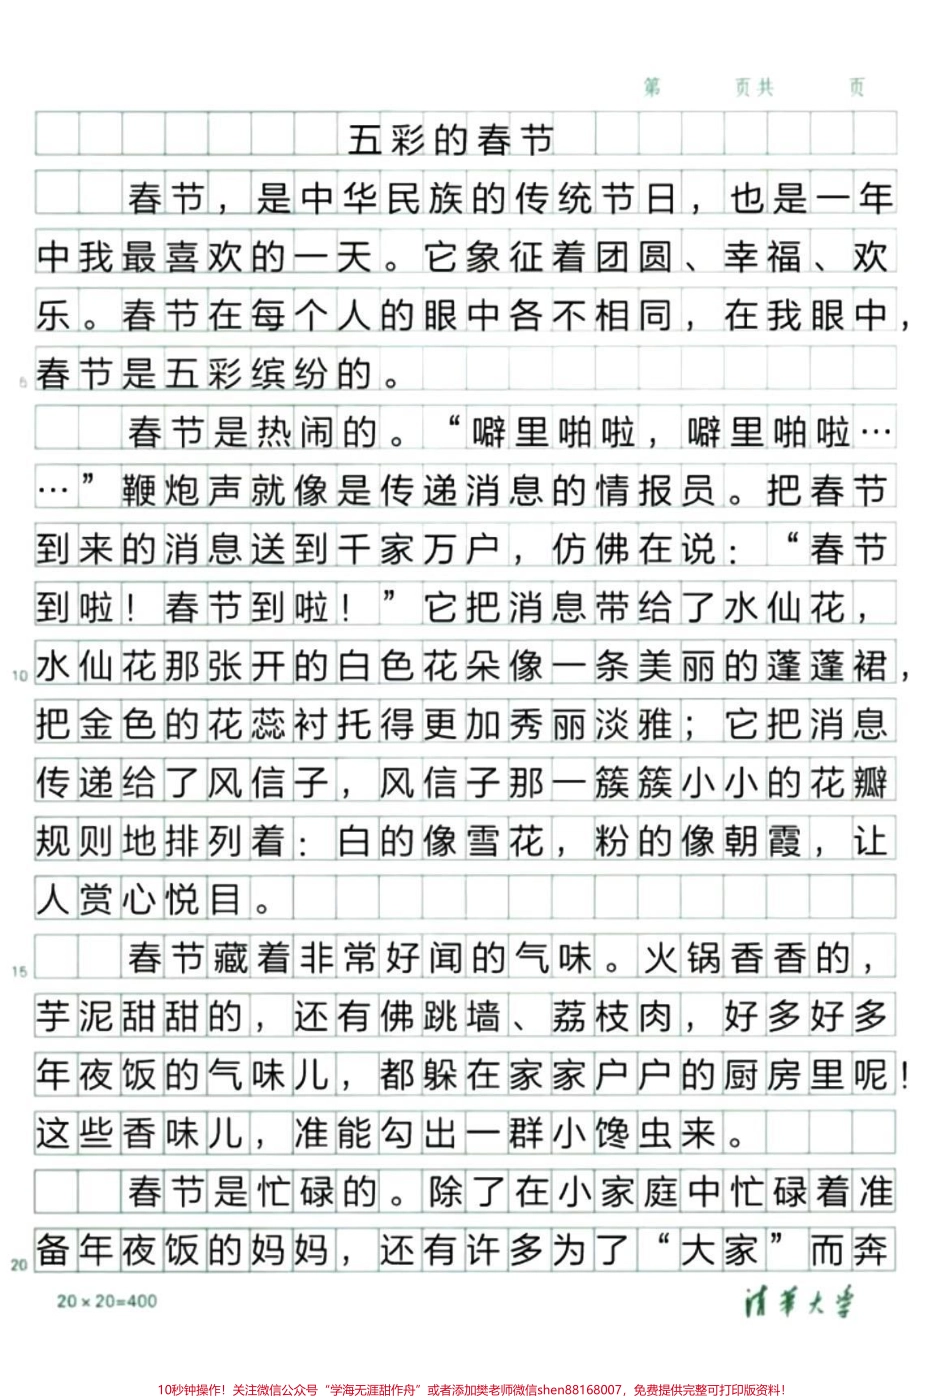 第 页共 页
五彩的春节
春节，是中华民族的传统节日，也是一年
中我最喜欢的一天。它象征着团圆、幸福、欢
乐。春节在每个人的眼中各不相同，在我眼中，
5 春节是五彩缤纷的。
春节是热闹的。“噼里啪啦，噼里啪啦…
…”鞭炮声就像是传递消息的情报员。把春节
到来的消息送到千家万户，仿佛在说：“春节
到啦！春节到啦！”它把消息带给了水仙花，
10 水仙花那张开的白色花朵像一条美丽的蓬蓬裙，
把金色的花蕊衬托得更加秀丽淡雅；它把消息
传递给了风信子，风信子那一簇簇小小的花瓣
规则地排列着：白的像雪花，粉的像朝霞，让
人赏心悦目。
15 春节藏着非常好闻的气味。火锅香香的，
芋泥甜甜的，还有佛跳墙、荔枝肉，好多好多
年夜饭的气味儿，都躲在家家户户的厨房里呢！
这些香味儿，准能勾出一群小馋虫来。
春节是忙碌的。除了在小家庭中忙碌着准
20 备年夜饭的妈妈，还有许多为了“大家”而奔
20×20=400 清华大学
10秒钟操作！关注微信公众号“学海无涯甜作舟”或者添加樊老师微信shen88168007，免费提供完整可打印版资料！